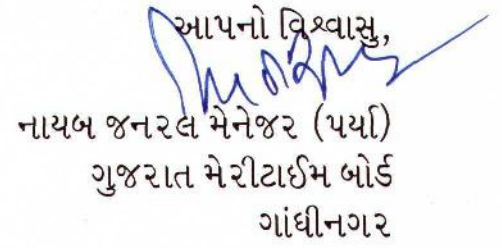 આપનો વિશ્વાસુ,
નાયબ જનરલ મેનેજર (પર્યા)
ગુજરાત મેરીટાઈમ બોર્ડ
ગાંધીનગર